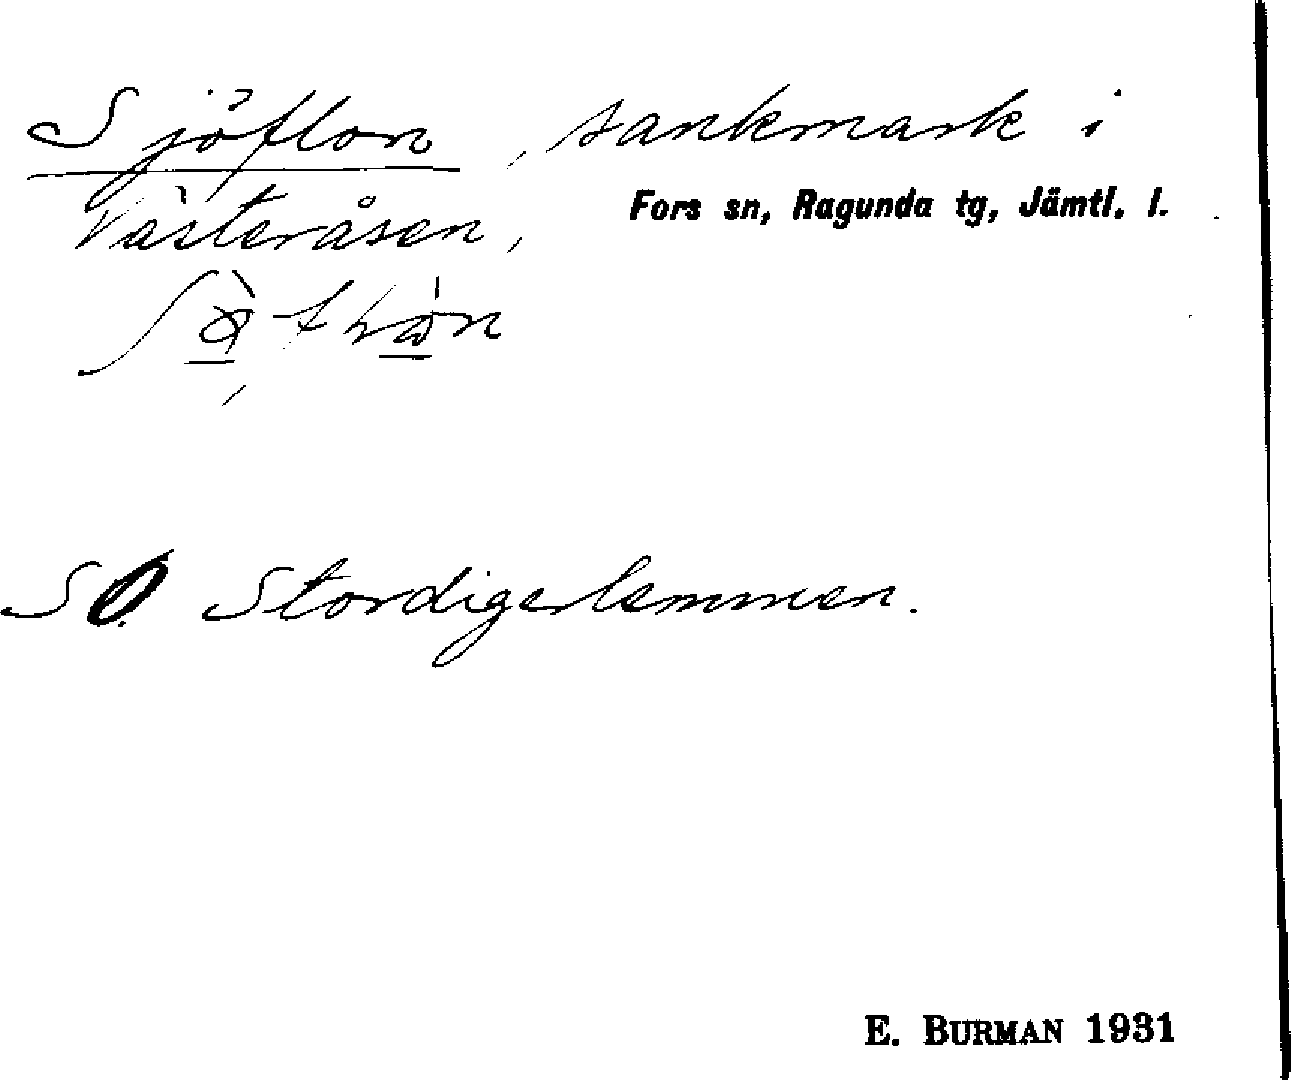 Sjöflon, sankmark i
Fors sn, Ragunda tg, Jämtl. l.
Västeråsen,
SO Stordigerlemmen.
E. BURMAN 1931